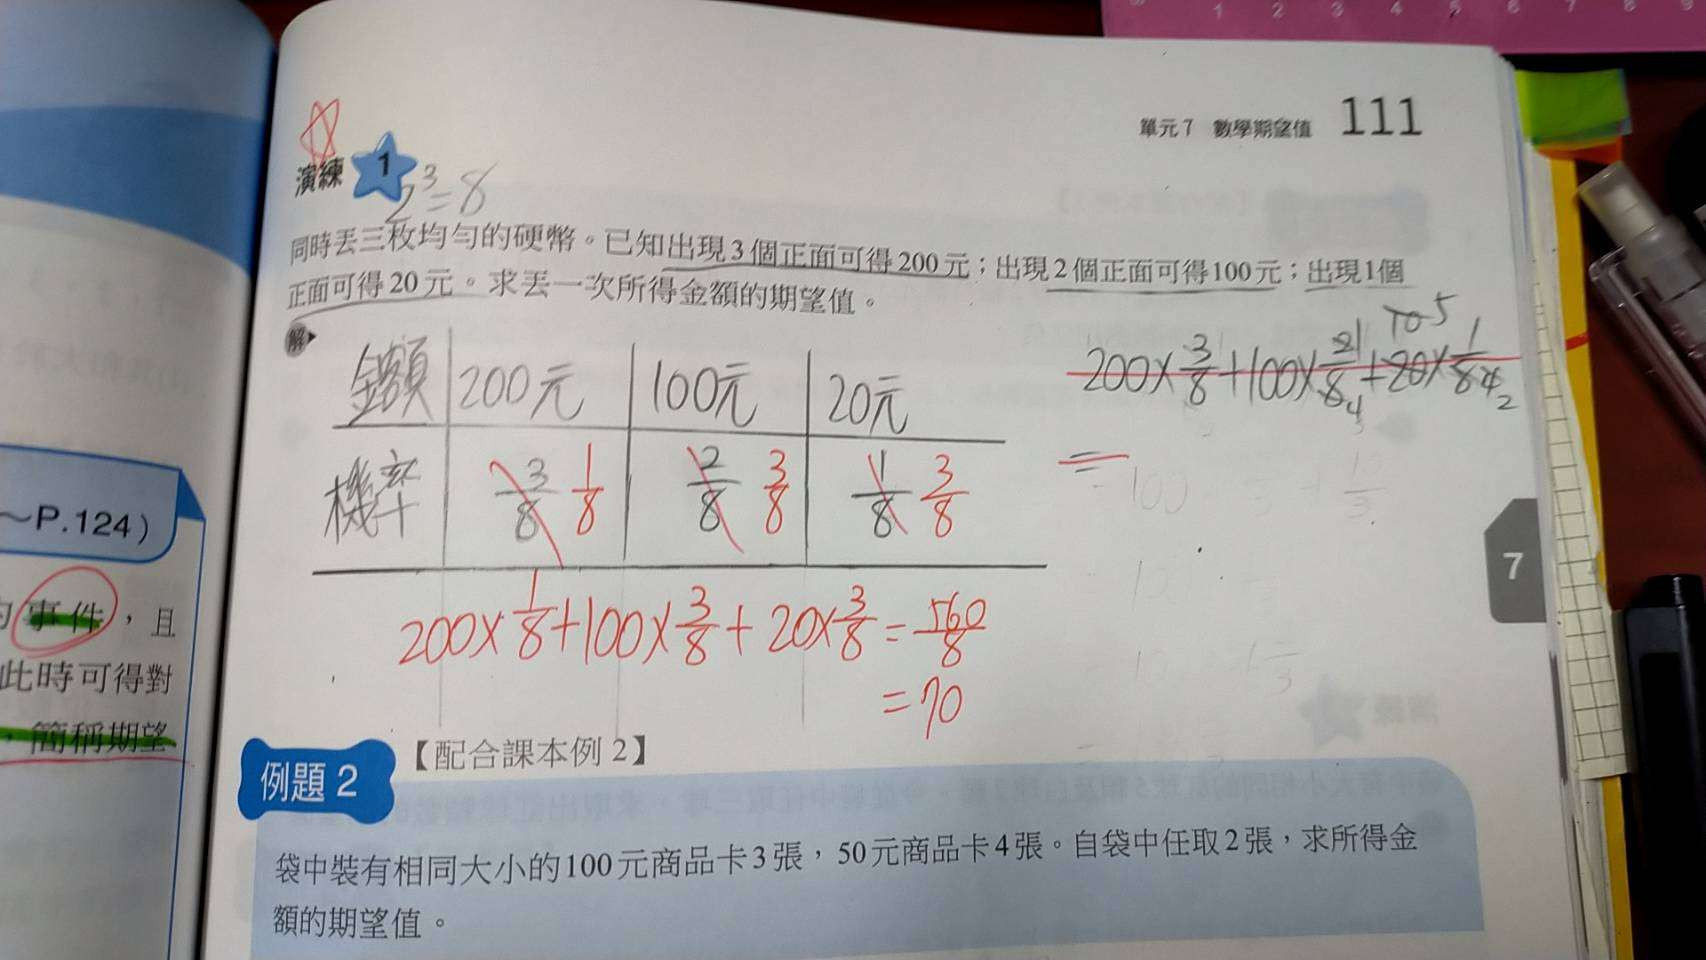 單元7 數學期望值 111
演練 1
2³=8
同時丟三枚均勻的硬幣。已知出現3個正面可得200元；出現2個正面可得100元；出現1個
正面可得20元。求丟一次所得金額的期望值。
解
金額 200元 100元 20元
機率 3/8 1/8 2/8 3/8 1/8 3/8
200×3/8+100×2/8+20×1/8
=
200×1/8+100×3/8+20×3/8=560/8
=70
7
例題2 【配合課本例2】
袋中裝有相同大小的100元商品卡3張，50元商品卡4張。自袋中任取2張，求所得金
額的期望值。
～P.124）
事件，且
此時可得對
，簡稱期望
1 2 3 4 5 6 7 8 9